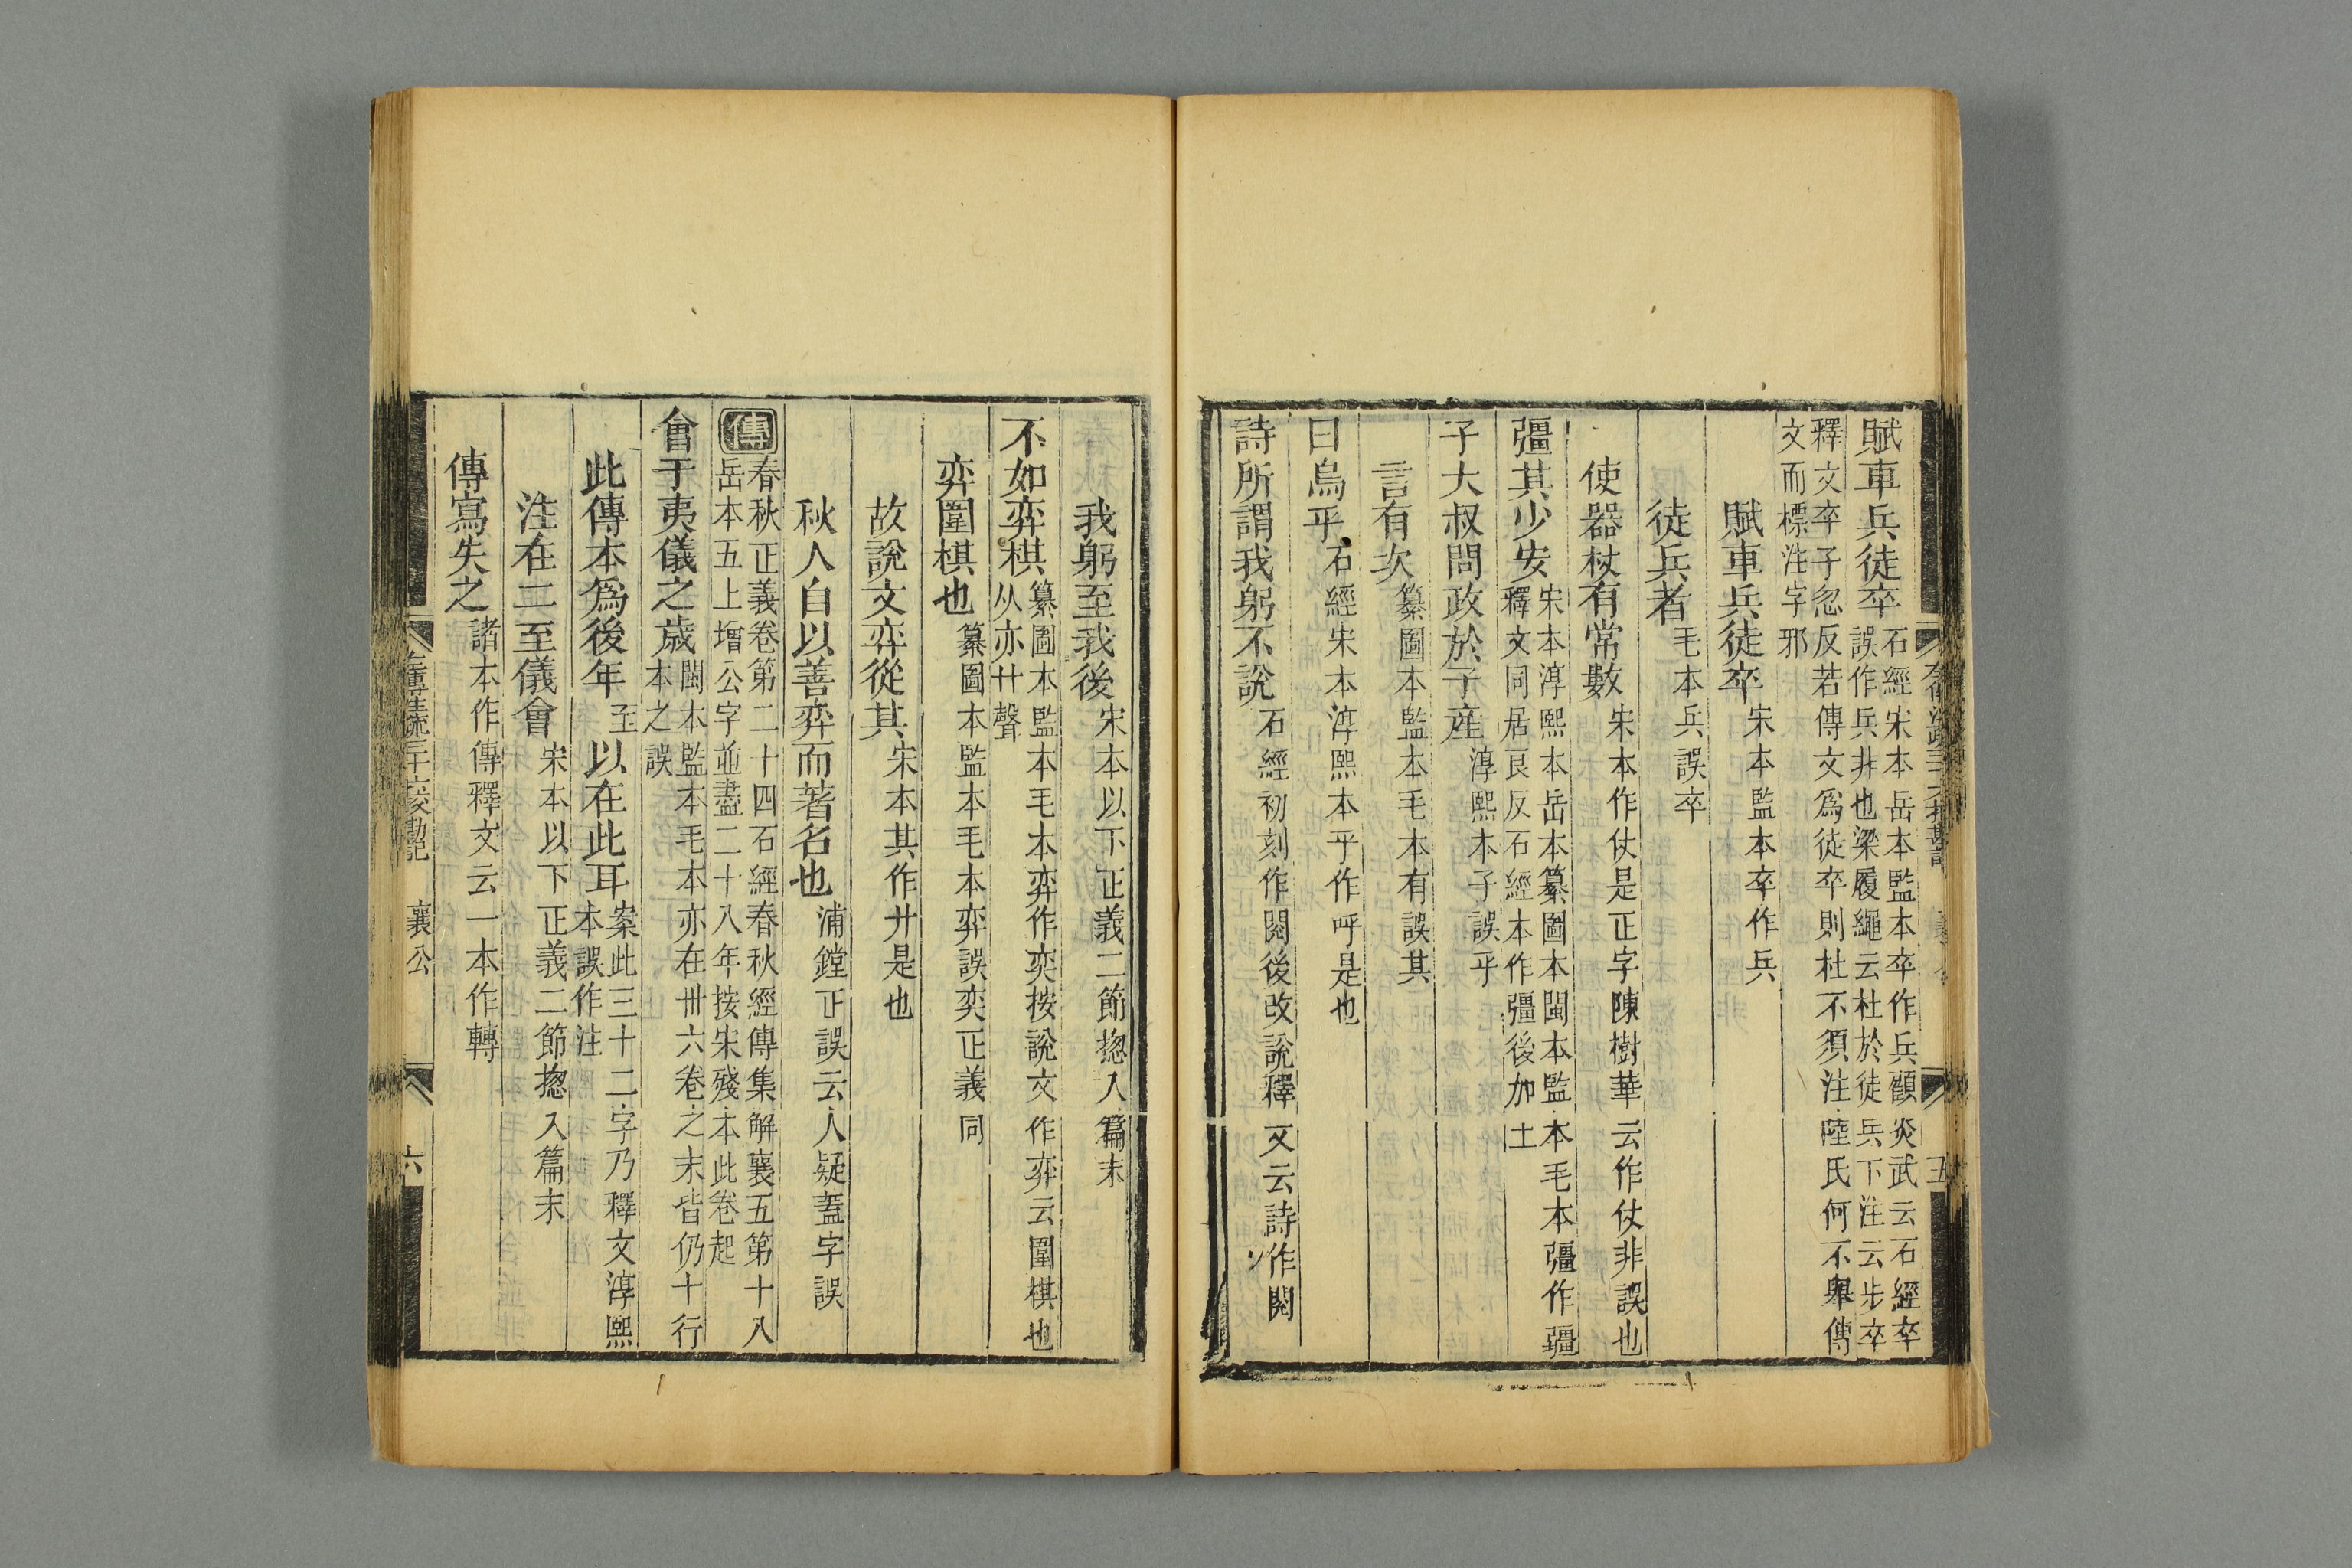 賦車兵徒卒石經宋本岳本監本卒作兵顧炎武云石經卒
誤作兵非也梁履繩云杜於徒兵下注云步卒
釋文卒子忽反若傳文爲徒卒則杜不須注陸氏何不舉傳
文而標注字邪
賦車兵徒卒宋本監本卒作兵
徒兵者毛本兵誤卒
使器杖有常數宋本作仗是正字陳樹華云作仗非誤也
彊其少安宋本淳熙本岳本纂圖本閩本監本毛本彊作疆
釋文同居良反石經本作彊後加土
子大叔問政於子產淳熙本子誤乎
言有次纂圖本監本毛本有誤其
曰烏乎石經宋本淳熙本乎作呼是也
詩所謂我躬不說石經初刻作閱後改說釋文云詩作閱
我躬至我後宋本以下正義二節揔入篇末
不如弈棋纂圖本監本毛本弈作奕按說文作弈云圍棋也
从亦廾聲
弈圍棋也纂圖本監本毛本弈誤奕正義同
故說文弈從其宋本其作廾是也
秋人自以善弈而著名也浦鏜正誤云人疑蓋字誤
傳春秋正義卷第二十四石經春秋經傳集解襄五第十八
岳本五上增公字並盡二十八年按宋殘本此卷起
會于夷儀之歲閩本監本毛本亦在卅六卷之末皆仍十行
本之誤
此傳本爲後年至以在此耳案此三十二字乃釋文淳熙
本誤作注
注在二至儀會宋本以下正義二節揔入篇末
傳寫失之諸本作傳釋文云一本作轉
襄公
六